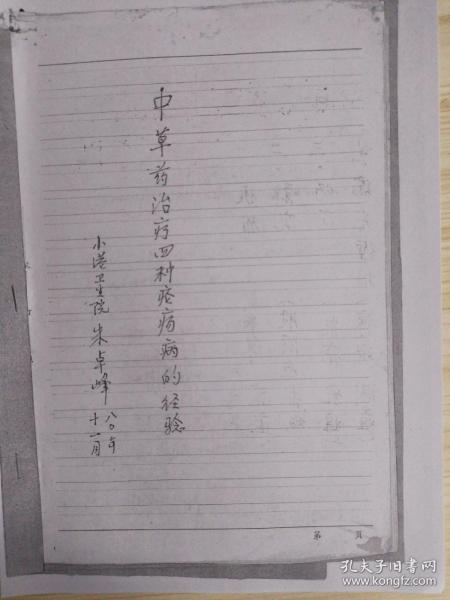 中草药治疗四种疮疡病的经验
小港卫生院 朱卓峰
八〇年
十一月
第 页
孔夫子旧书网
www.kongfz.com